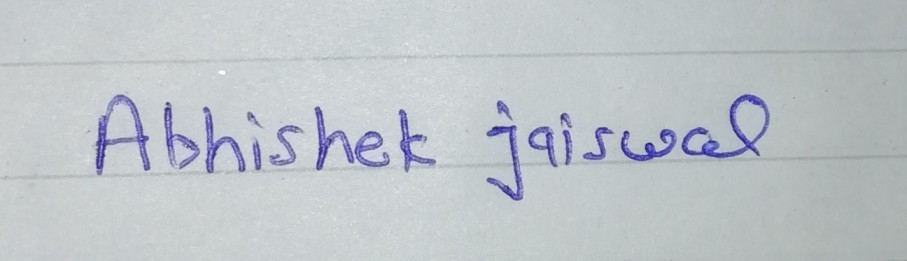 Abhishek jaiswal